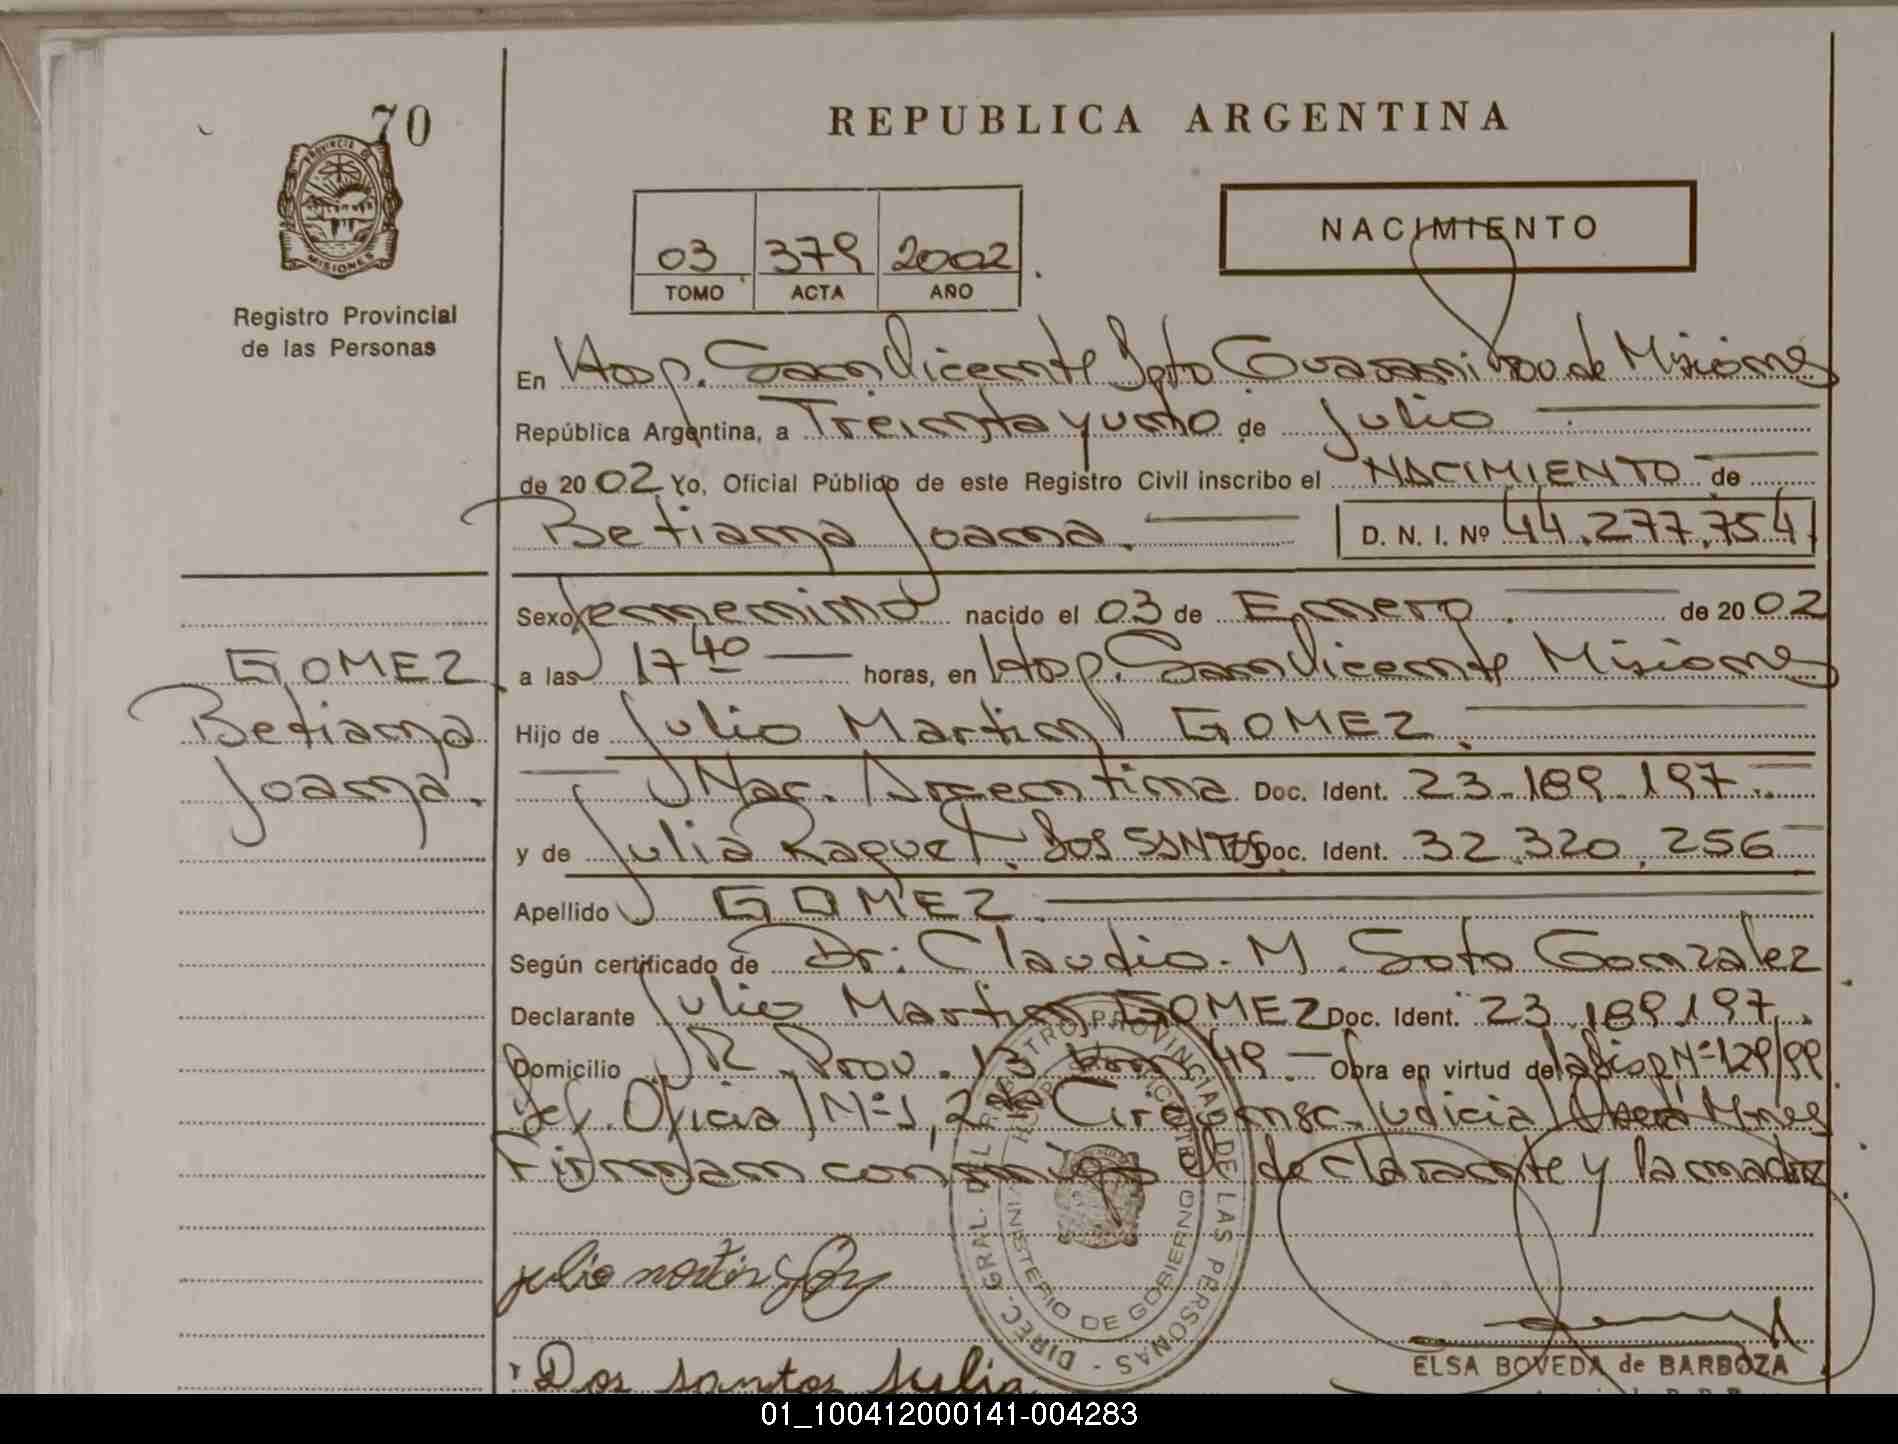 70
REPUBLICA ARGENTINA
PROVINCIA DE
MISIONES
Registro Provincial
de las Personas
03 379 2002
TOMO ACTA AÑO
NACIMIENTO
En Hosp. San Vicente Dpto Guarani Prov. de Misiones
República Argentina, a Treinta y uno de Julio
de 2002 Yo, Oficial Público de este Registro Civil inscribo el NACIMIENTO de
Betiana Joana. D. N. I. Nº 44.277.754
Sexo femenino nacido el 03 de Enero de 2002
GOMEZ
Betiana
Joana.
a las 17 40 horas, en Hosp. San Vicente Misiones
Hijo de Julio Martin GOMEZ.
Nac. Argentina Doc. Ident. 23.189.197
y de Julia Raquel DOS SANTOS Doc. Ident. 32.320.256
Apellido GOMEZ
Según certificado de Dr: Claudio M. Soto Gonzalez
Declarante Julio Martin GOMEZ Doc. Ident. 23.189.197.
Domicilio R. Prov. 13 km 49. Obra en virtud de la disp Nº 129/99
def. Oficial Nº 1, 2da Circunsc. Judicial Oberá Mnes
Firman conmigo el declarante y la madre
DIREC. GRAL. DEL REGISTRO PROVINCIAL DE LAS PERSONAS
MINISTERIO DE GOBIERNO
julio martin
Dos santos Julia
ELSA BOVEDA de BARBOZA
01_100412000141-004283